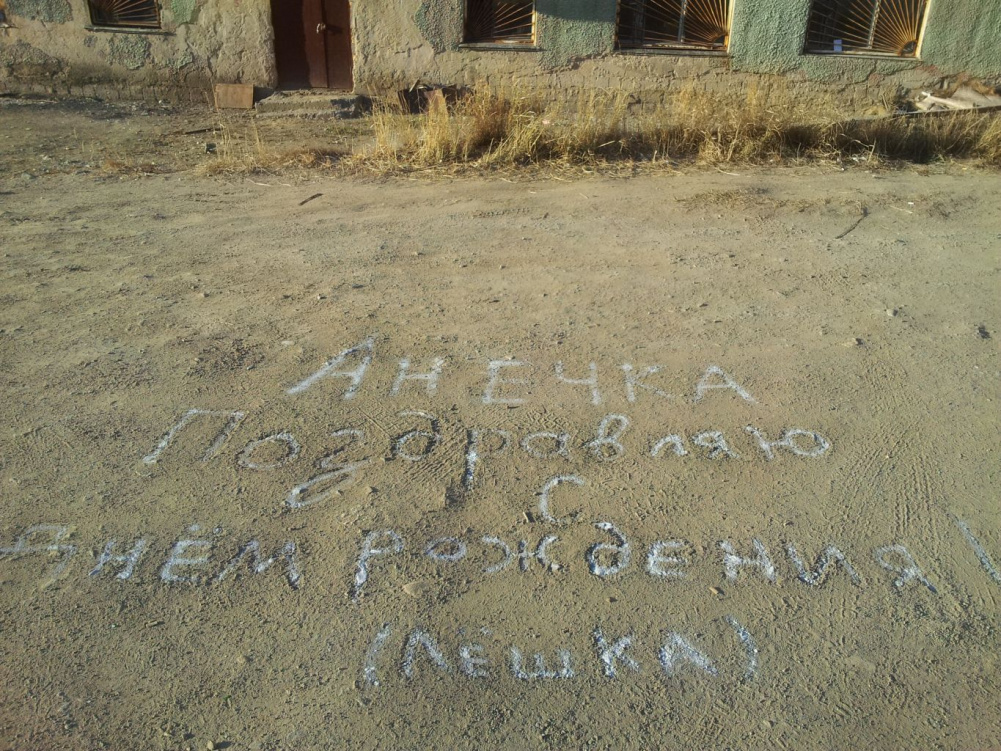 Анечка
Поздравляю
с
Днём рождения!
(Лёшка)